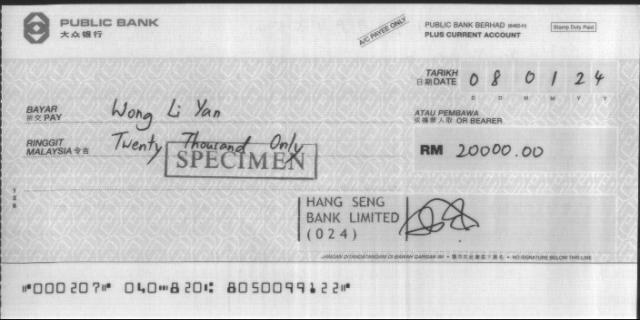 PUBLIC BANK
大众银行
A/C PAYEE ONLY
PUBLIC BANK BERHAD
PLUS CURRENT ACCOUNT
Stamp Duty Paid
TARIKH
日期 DATE 08 01 24
D D M M Y Y
BAYAR
祈交 PAY Wong Li Yan
ATAU PEMBAWA
或持票人取 OR BEARER
RINGGIT
MALAYSIA 令吉 Twenty Thousand Only
RM 20000.00
SPECIMEN
HANG SENG
BANK LIMITED
(024)
JANGAN DITANDATANGANI DI BAWAH GARISAN INI • NO SIGNATURE BELOW THIS LINE
⑈000207⑈ 040⑉820⑆ 8050099122⑈